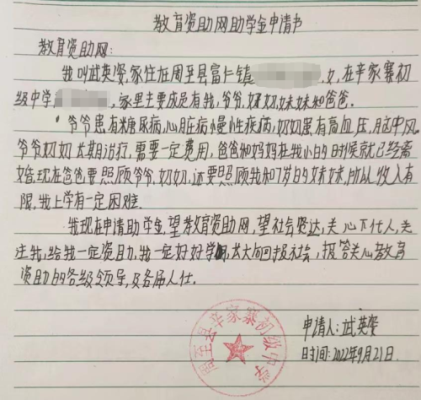 教育资助网助学金申请书
教育资助网:
我叫武英贤,家住在周至县富仁镇,女,在辛家寨初
级中学,家里主要成员有我,爷爷,奶奶,妹妹和爸爸。
爷爷患有糖尿病,心脏病慢性疾病,奶奶患有高血压,脑中风。
爷爷奶奶长期治疗,需要一定费用,爸爸和妈妈在我小的时候就已经离
婚,现在爸爸要照顾爷爷,奶奶,还要照顾我和7岁的妹妹,所以收入有
限,我上学有一定困难。
我现在申请助学金,望教育资助网,望社会贤达,关心下代人,关
注我,给我一定资助,我一定好好学习,长大回报社会,报答关心教育
资助的各级领导,及各届人仕。
周至县辛家寨初级中学
申请人:武英贤
日时间:2022年9月21日.